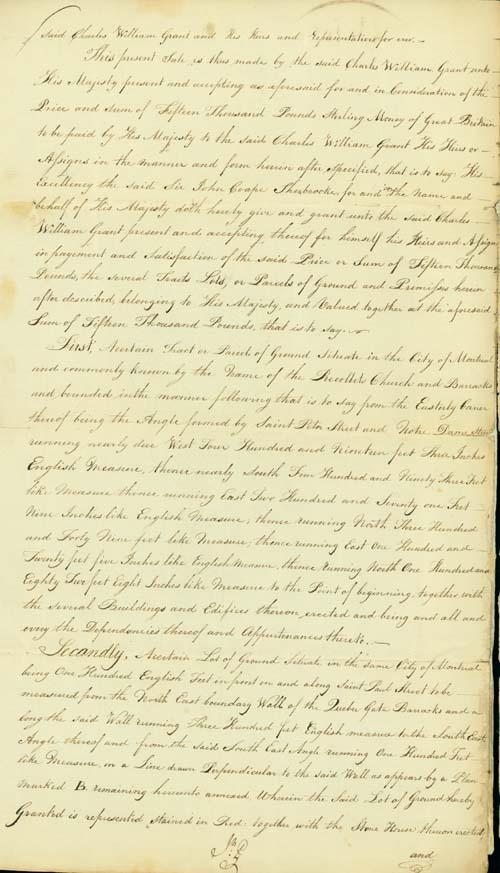 said Charles William Grant and His Heirs and Representatives for ever. —
This present Sale is thus made by the said Charles William Grant unto
His Majesty present and accepting as aforesaid for and in Consideration of the
Price and Sum of Fifteen Thousand Pounds Sterling Money of Great Britain
to be paid by His Majesty to the said Charles William Grant His Heirs or —
Assigns in the manner and form herein after specified, that is to say: His
Excellency the said Sir John Coape Sherbrooke, for and in The Name and
behalf of His Majesty doth hereby give and grant unto the said Charles —
William Grant present and accepting thereof for himself his Heirs and Assigns
in payment and Satisfaction of the said Price or Sum of Fifteen Thousand
Pounds, the several Tracts Lots, or Parcels of Ground and Premises herein
after described, belonging to His Majesty, and Valued together at the aforesaid
Sum of Fifteen Thousand Pounds, that is to say. —
First, A certain Tract or Parcel of Ground Situate in the City of Montreal
and commonly known by the Name of the Recollets Church and Barracks
and bounded in the manner following that is to say from the Easterly Corner
thereof being the Angle formed by Saint Peter Street and Notre Dame Street
running nearly due West Four Hundred and Nineteen feet Three Inches
English Measure, thence nearly South Four Hundred and Ninety Three Feet
like Measure thence running East Two Hundred and Seventy one Feet
Nine Inches like English Measure; thence running North Three Hundred
and Forty Nine feet like Measure; thence running East One Hundred and
Twenty feet five Inches like English Measure, thence running North One Hundred and
Eighty Two feet Eight Inches like Measure to the Point of beginning, together with
the Several Buildings and Edifices thereon erected and being and all and
every the Dependencies thereof and Appurtenances thereto. —
Secondly, A certain Lot of Ground Situate in the same City of Montreal
being One Hundred English Feet in front on and along Saint Paul Street to be
measured from the North East boundary Wall of the Quebec Gate Barracks and a
long the said Wall running Three Hundred feet English measure to the South East
Angle thereof and from the said South East Angle running One Hundred Feet
like Measure, in a Line drawn Perpendicular to the said Wall as appears by a Plan
marked B. remaining hereunto annexed Wherein the Said Lot of Ground hereby
Granted is represented stained in Red: together with the Stone House thereon erected
and